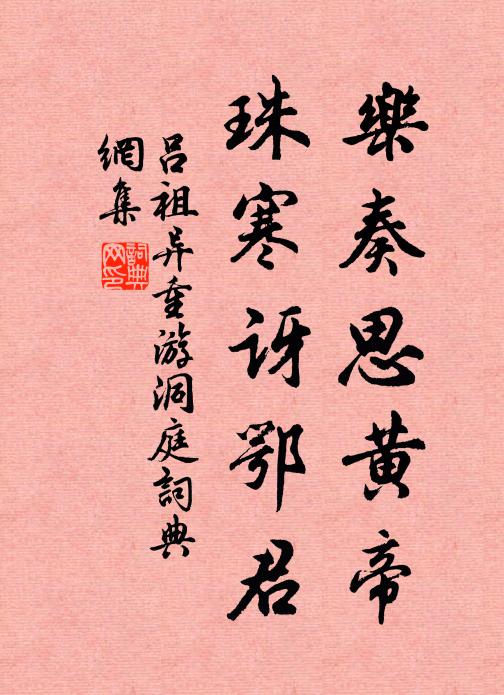 樂奏思黃帝
珠寒訝鄂君
呂祖异重游洞庭詞典
網集
詞典
网印